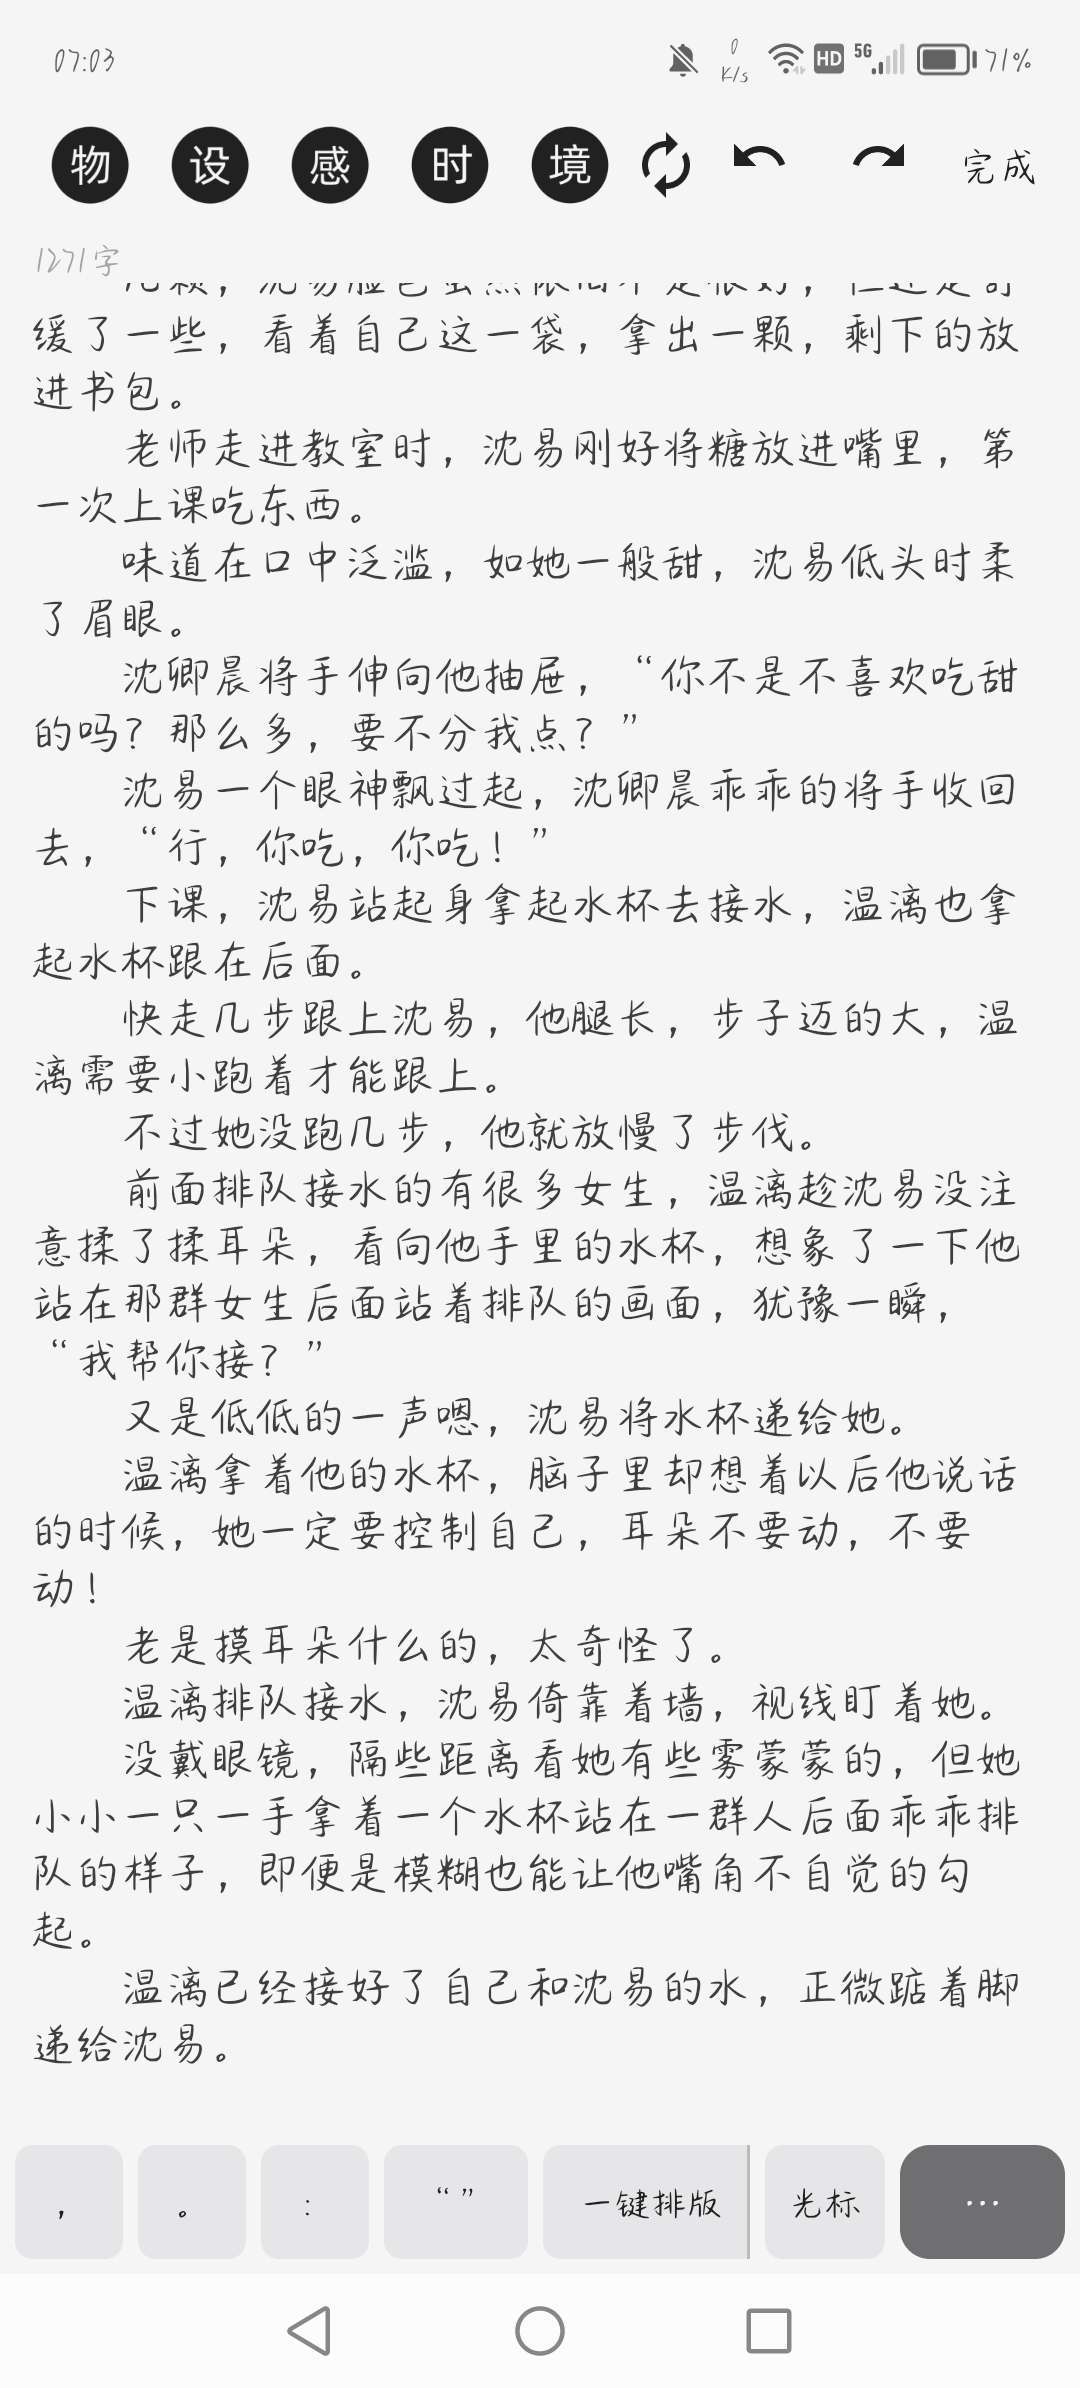 07:03
0
K/s
HD
5G
71%
物 设 感 时 境
完成
1271字
缓了一些，看着自己这一袋，拿出一颗，剩下的放
进书包。
老师走进教室时，沈易刚好将糖放进嘴里，第
一次上课吃东西。
味道在口中泛滥，如她一般甜，沈易低头时柔
了眉眼。
沈卿晨将手伸向他抽屉，“你不是不喜欢吃甜
的吗？那么多，要不分我点？”
沈易一个眼神飘过起，沈卿晨乖乖的将手收回
去，“行，你吃，你吃！”
下课，沈易站起身拿起水杯去接水，温漓也拿
起水杯跟在后面。
快走几步跟上沈易，他腿长，步子迈的大，温
漓需要小跑着才能跟上。
不过她没跑几步，他就放慢了步伐。
前面排队接水的有很多女生，温漓趁沈易没注
意揉了揉耳朵，看向他手里的水杯，想象了一下他
站在那群女生后面站着排队的画面，犹豫一瞬，
“我帮你接？”
又是低低的一声嗯，沈易将水杯递给她。
温漓拿着他的水杯，脑子里却想着以后他说话
的时候，她一定要控制自己，耳朵不要动，不要
动！
老是摸耳朵什么的，太奇怪了。
温漓排队接水，沈易倚靠着墙，视线盯着她。
没戴眼镜，隔些距离看她有些雾蒙蒙的，但她
小小一只一手拿着一个水杯站在一群人后面乖乖排
队的样子，即便是模糊也能让他嘴角不自觉的勾
起。
温漓已经接好了自己和沈易的水，正微踮着脚
递给沈易。
， 。 ： “” 一键排版 光标 …